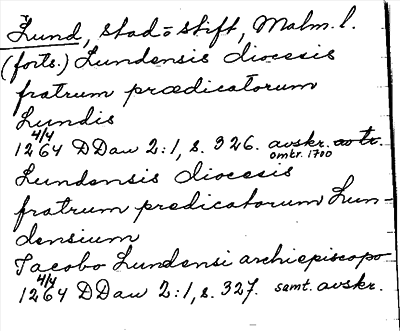 Lund, stad o stift, Malm. l.
(forts.) Lundensis diocesis
fratrum prædicatorum
Lundis
4/4
1264 DDan 2:1, s. 326. avskr. av tr.
omkr. 1700
Lundensis diocesis
fratrum predicatorum Lun-
densium
Jacobo Lundensi archiepiscopo
4/4
1264 DDan 2:1, s. 327. samt. avskr.